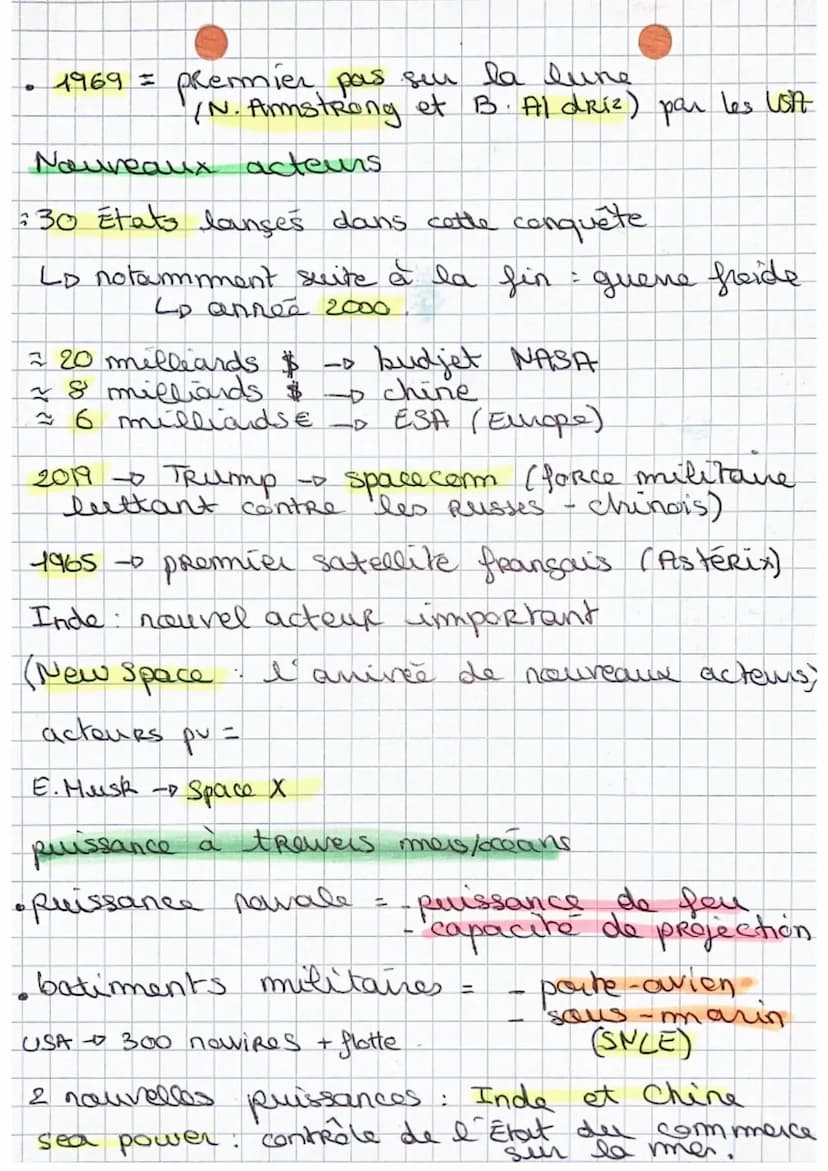 • 1969 = premier pas sur la lune
(N. Armstrong et B. Aldriz) par les USA
Nouveaux acteurs
: 30 États lançés dans cette conquête
↳ notammment suite à la fin : guerre froide
↳ année 2000.
≈ 20 milliards $ → budjet NASA
≈ 8 milliards $ → chine
≈ 6 milliards € → ESA (Europe)
2019 → Trump → spacecom (force militaire
luttant contre les russes - chinois)
1965 → premier satellite français (Astérix)
Inde : nouvel acteur important
(New space : l'arrivée de nouveaux acteurs)
acteurs pv =
E. Musk → Space X
puissance à travers mers/océans
• puissance navale = - puissance de feu
- capacité de projection
• batiments militaires = - porte-avion
- sous-marin
USA → 300 navires + flotte. (SNLE)
2 nouvelles puissances : Inde et Chine
sea power : contrôle de l'État du commerce
sur la mer.